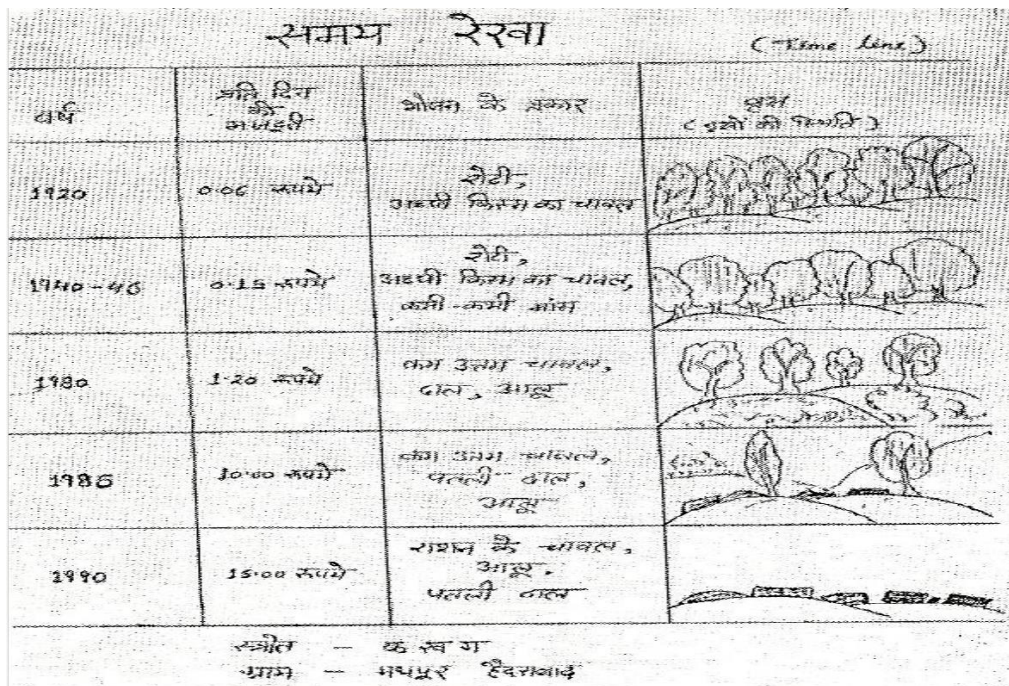 समय रेखा
(Time line)
वर्ष
प्रति दिन
की
मजदूरी
भोजन के प्रकार
वृक्ष
(वृक्षों की स्थिति)
1920
0.06 रूपये
रोटी,
अच्छी किस्म का चावल
1940-45
0.15 रूपये
रोटी,
अच्छी किस्म का चावल,
कभी-कभी मांस
1980
1.20 रूपये
कम उत्तम चावल,
दाल, आलू
1985
10.00 रूपये
कम उत्तम चावल,
पतली दाल,
आलू
1990
15.00 रूपये
राशन के चावल,
आलू,
पतली दाल
स्त्रोत - क ख ग
ग्राम - हैदराबाद